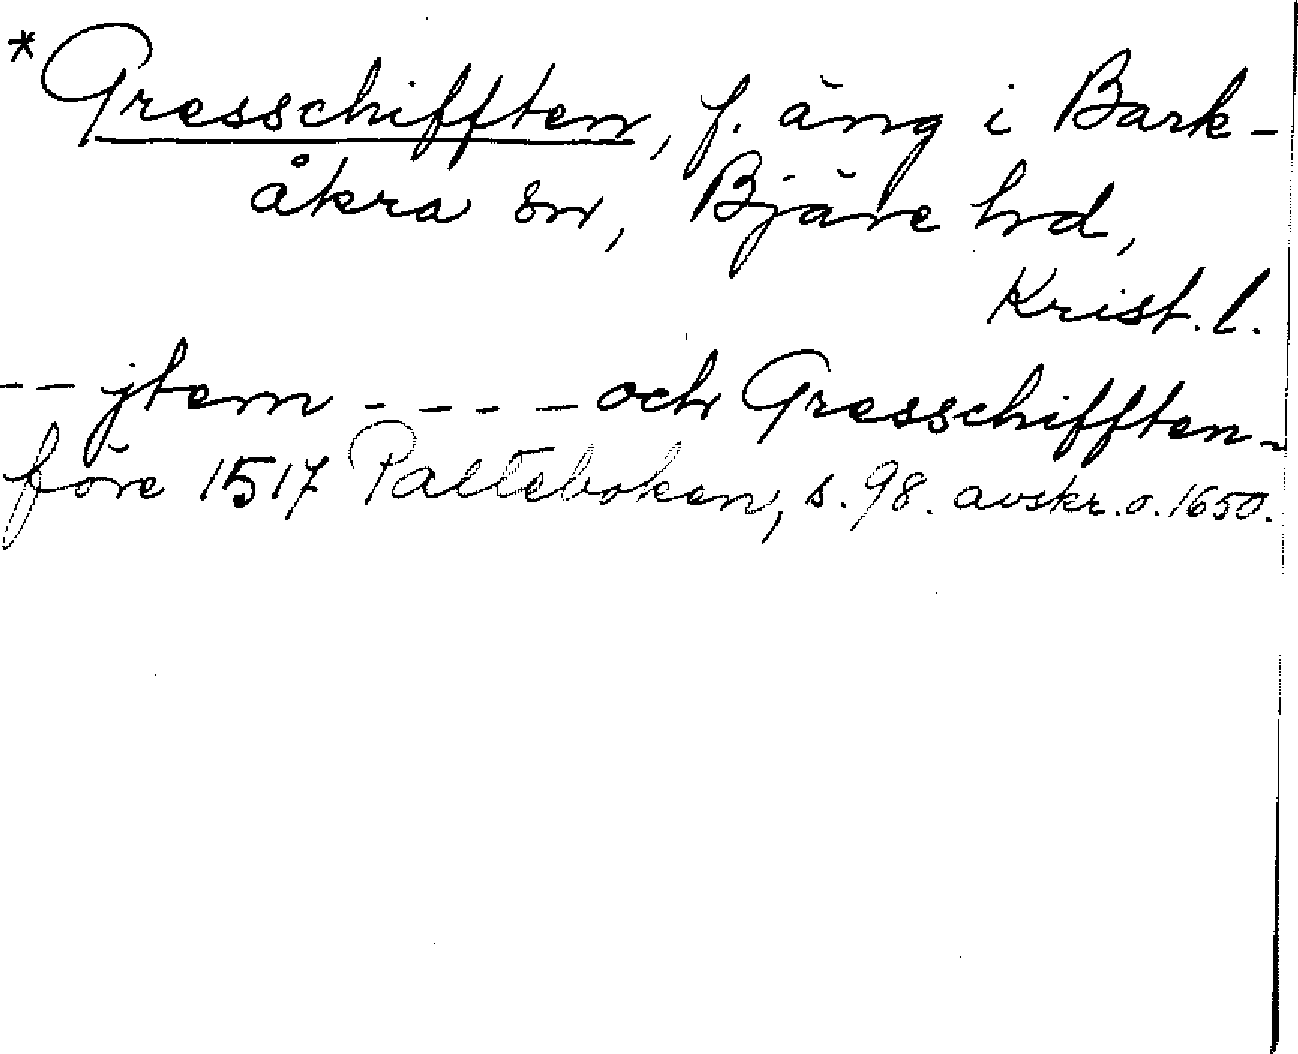 *Gresschifften, f. äng i Bark-
åkra sn, Bjäre hd,
Krist. l.
-- jtem ---- och Gresschifften-
före 1517 Palteboken, s. 98. avskr. o. 1650.